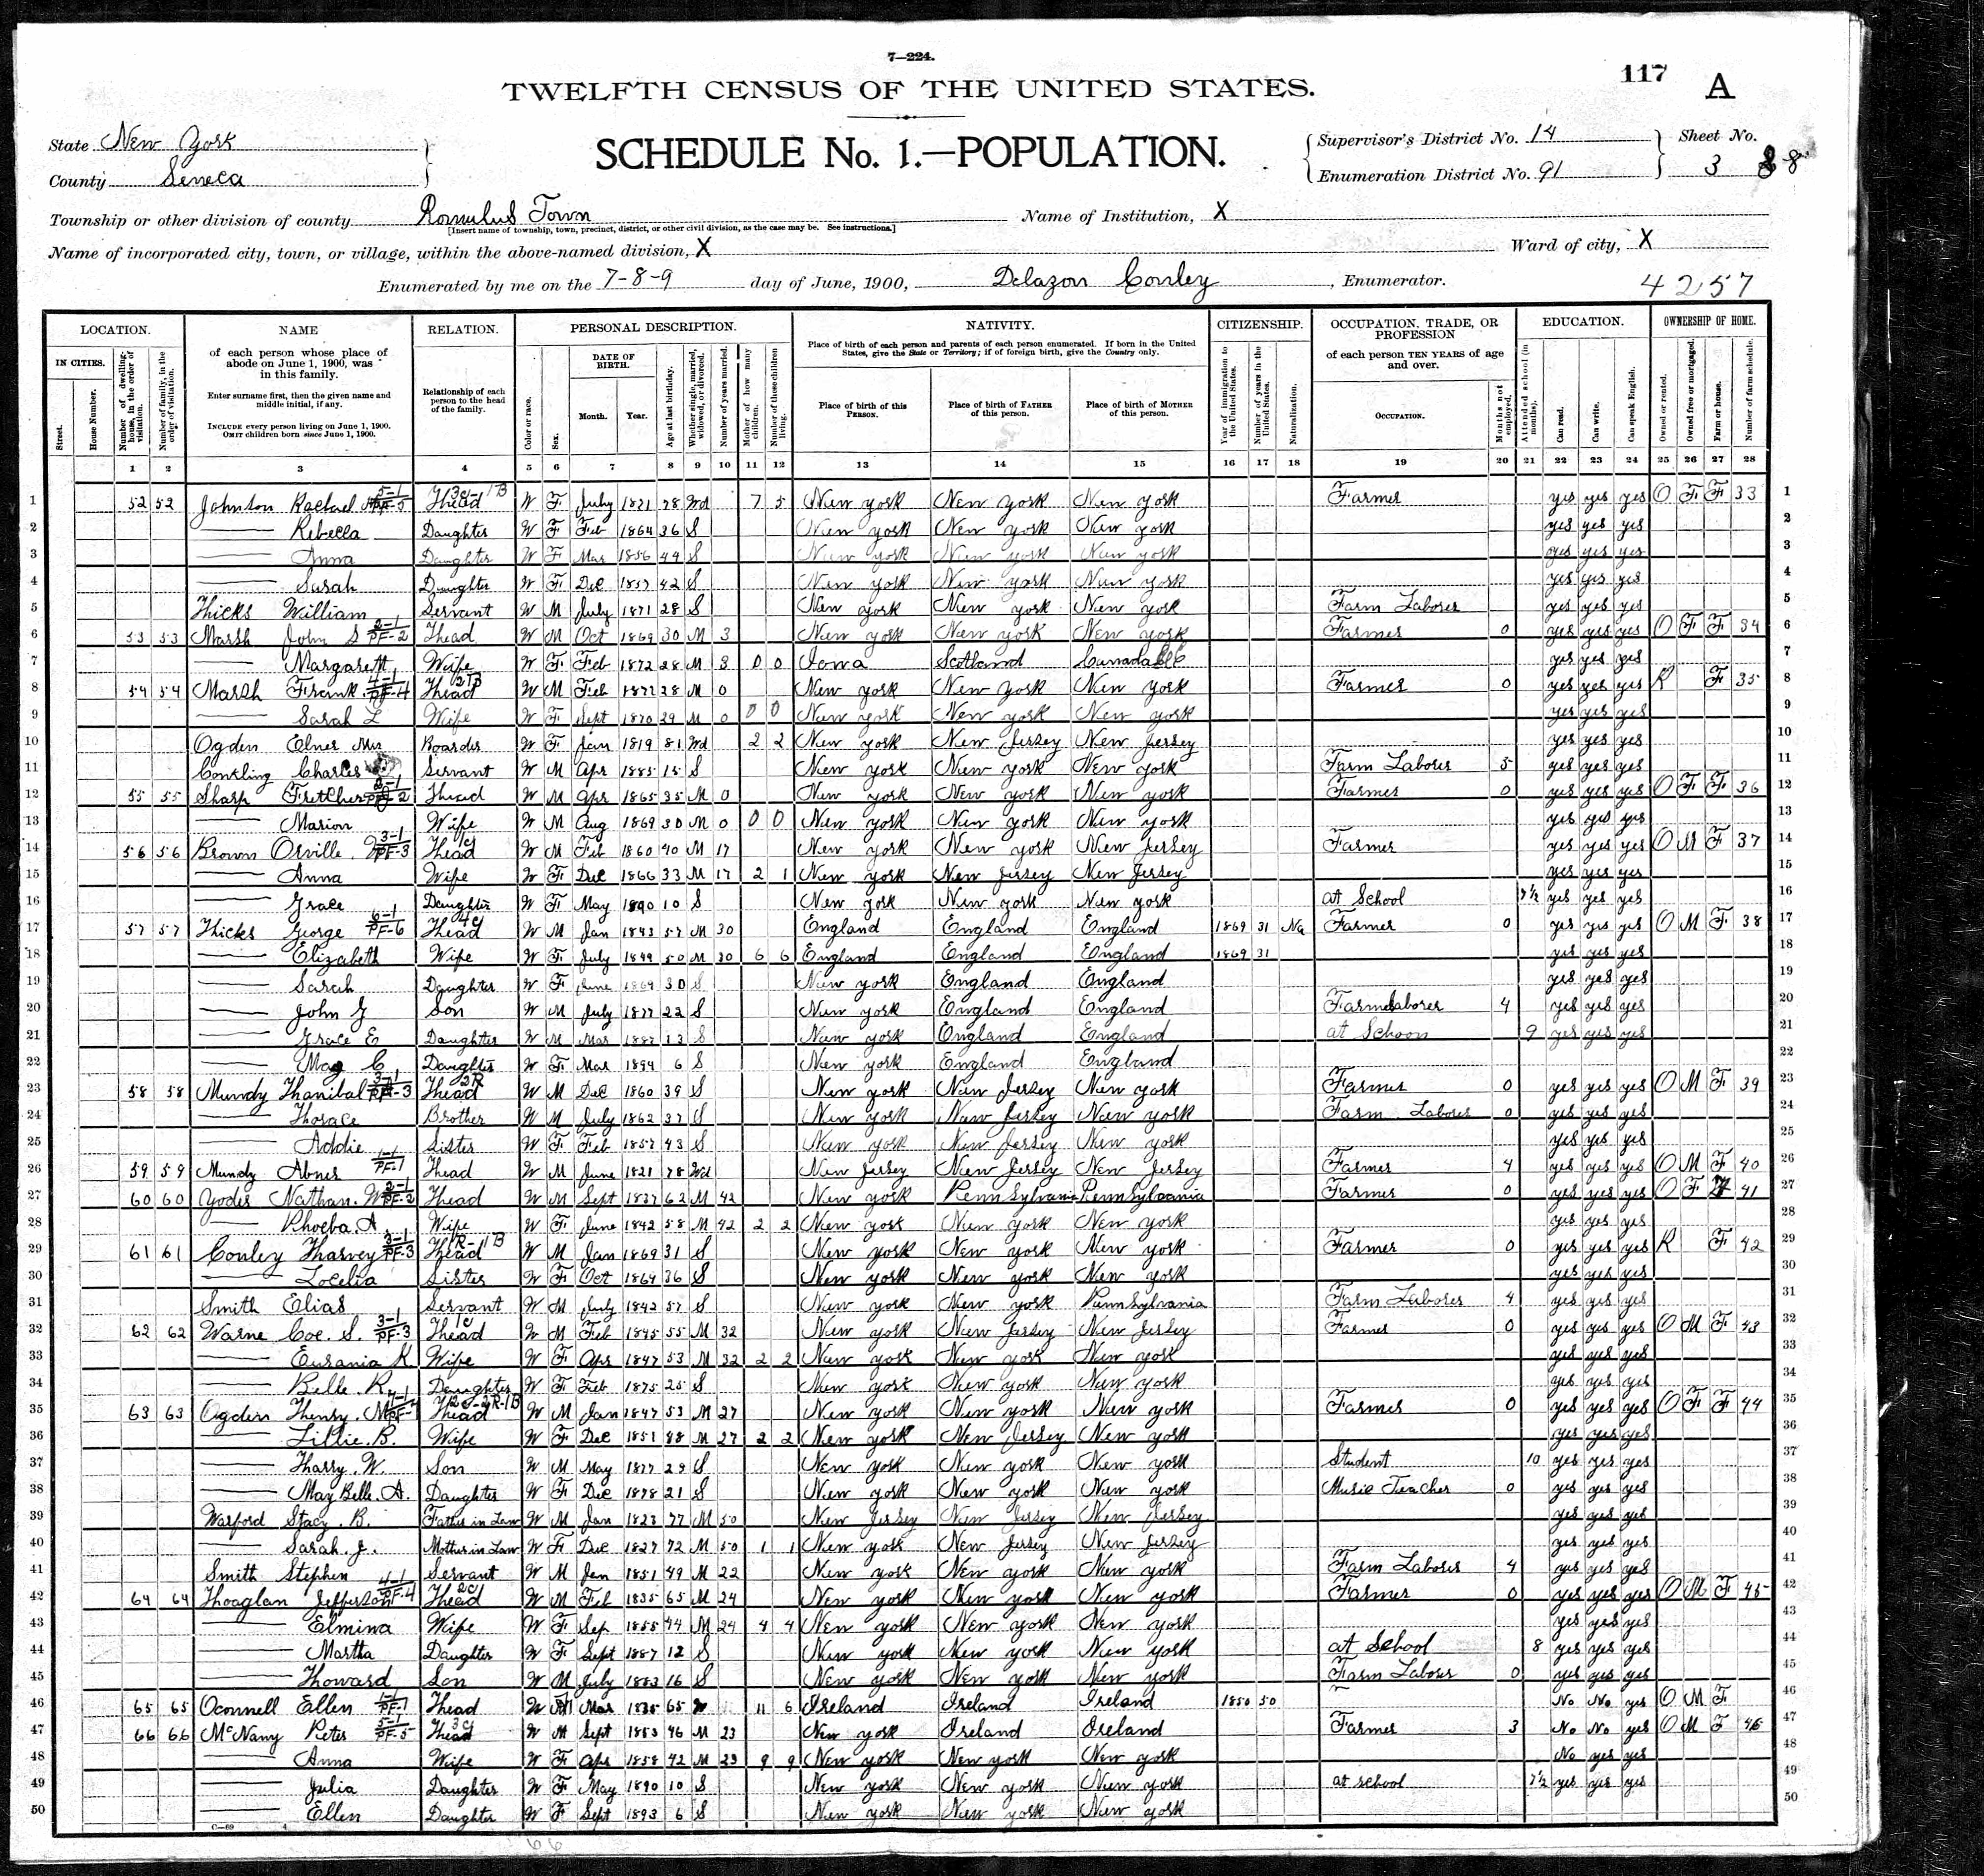 7—224.
117 A
TWELFTH CENSUS OF THE UNITED STATES.
SCHEDULE No. 1.—POPULATION.
State New York
County Seneca
Supervisor's District No. 14
Enumeration District No. 91
Sheet No.
3 8
Township or other division of county Romulus Town
[Insert name of township, town, precinct, district, or other civil division, as the case may be. See instructions.]
Name of Institution, X
Name of incorporated city, town, or village, within the above-named division, X
Ward of city, X
Enumerated by me on the 7-8-9 day of June, 1900, Delazon Conley, Enumerator.
4257
LOCATION. NAME RELATION. PERSONAL DESCRIPTION. NATIVITY. CITIZENSHIP. OCCUPATION, TRADE, OR PROFESSION EDUCATION. OWNERSHIP OF HOME.
IN CITIES.
Street.
House Number.
Number of dwelling-house, in the order of visitation.
Number of family, in the order of visitation.
of each person whose place of abode on June 1, 1900, was in this family.
Enter surname first, then the given name and middle initial, if any.
INCLUDE every person living on June 1, 1900.
OMIT children born since June 1, 1900.
Relationship of each person to the head of the family.
Color or race.
Sex.
DATE OF BIRTH.
Month. Year.
Age at last birthday.
Whether single, married, widowed, or divorced.
Number of years married.
Mother of how many children.
Number of these children living.
Place of birth of each person and parents of each person enumerated. If born in the United States, give the State or Territory; if of foreign birth, give the Country only.
Place of birth of this PERSON.
Place of birth of FATHER of this person.
Place of birth of MOTHER of this person.
Year of immigration to the United States.
Number of years in the United States.
Naturalization.
of each person TEN YEARS of age and over.
OCCUPATION.
Months not employed.
Attended school (in months).
Can read.
Can write.
Can speak English.
Owned or rented.
Owned free or mortgaged.
Farm or house.
Number of farm schedule.
1 2 3 4 5 6 7 8 9 10 11 12 13 14 15 16 17 18 19 20 21 22 23 24 25 26 27 28
1 52 52 Johnson Rachael Head W F July 1821 78 Wd 7 5 New York New York New York Farmer yes yes yes O F F 33 1
2 Rebecca Daughter W F Feb 1864 36 S New York New York New York yes yes yes 2
3 Anna Daughter W F Mar 1856 44 S New York New York New York yes yes yes 3
4 Sarah Daughter W F Dec 1857 42 S New York New York New York yes yes yes 4
5 Hicks William Servant W M July 1871 28 S New York New York New York Farm Laborer yes yes yes 5
6 53 53 Marsh John S Head W M Oct 1869 30 M 3 New York New York New York Farmer 0 yes yes yes O F F 34 6
7 Margarett Wife W F Feb 1872 28 M 3 0 0 Iowa Scotland Canada yes yes yes 7
8 54 54 Marsh Frank Head W M Feb 1872 28 M 0 New York New York New York Farmer 0 yes yes yes R F 35 8
9 Sarah L Wife W F Sept 1870 29 M 0 0 0 New York New York New York yes yes yes 9
10 Ogden Mrs Boarder W F Jan 1819 81 Wd 2 2 New York New Jersey New Jersey yes yes yes 10
11 Conkling Charles Servant W M Apr 1885 15 S New York New York New York Farm Laborer 5 yes yes yes 11
12 55 55 Sharp Fletcher Head W M Apr 1865 35 M 0 New York New York New York Farmer 0 yes yes yes O F F 36 12
13 Marion Wife W M Aug 1869 30 M 0 0 0 New York New York New York yes yes yes 13
14 56 56 Brown Orville Head W M Feb 1860 40 M 17 New York New York New Jersey Farmer yes yes yes O M F 37 14
15 Anna Wife W F Dec 1866 33 M 17 2 1 New York New Jersey New Jersey yes yes yes 15
16 Grace Daughter W F May 1890 10 S New York New York New York at School 7½ yes yes yes 16
17 57 57 Hicks George Head W M Jan 1843 57 M 30 England England England 1869 31 Na Farmer 0 yes yes yes O M F 38 17
18 Elizabeth Wife W F July 1849 50 M 30 6 6 England England England 1869 31 yes yes yes 18
19 Sarah Daughter W F June 1869 30 S New York England England yes yes yes 19
20 John G Son W M July 1877 22 S New York England England Farm Laborer 4 yes yes yes 20
21 Grace E Daughter W M Mar 1887 13 S New York England England at School 9 yes yes yes 21
22 May C Daughter W F Mar 1894 6 S New York England England 22
23 58 58 Mundy Hanibal Head W M Dec 1860 39 S New York New Jersey New York Farmer 0 yes yes yes O M F 39 23
24 Horace Brother W M July 1862 37 S New York New Jersey New York Farm Laborer 0 yes yes yes 24
25 Addie Sister W F Feb 1857 43 S New York New Jersey New York yes yes yes 25
26 59 59 Mundy Abner Head W M June 1821 78 Wd New Jersey New Jersey New Jersey Farmer 4 yes yes yes O M F 40 26
27 60 60 Yoder Nathan W Head W M Sept 1837 62 M 42 New York Pennsylvania Pennsylvania Farmer 0 yes yes yes O F F 41 27
28 Phoeba A Wife W F June 1842 58 M 42 2 2 New York New York New York yes yes yes 28
29 61 61 Conley Harvey Head W M Jan 1869 31 S New York New York New York Farmer 0 yes yes yes R F 42 29
30 Locelia Sister W F Oct 1864 36 S New York New York New York yes yes yes 30
31 Smith Elias Servant W M July 1842 57 S New York New York Pennsylvania Farm Laborer 4 yes yes yes 31
32 62 62 Warne Coe. S. Head W M Feb 1845 55 M 32 New York New Jersey New Jersey Farmer 0 yes yes yes O M F 43 32
33 Eurania K Wife W F Apr 1847 53 M 32 2 2 New York New York New York yes yes yes 33
34 Belle. R Daughter W F Feb 1875 25 S New York New York New York yes yes yes 34
35 63 63 Ogden Henry. M Head W M Jan 1847 53 M 27 New York New York New York Farmer 0 yes yes yes O F F 44 35
36 Lillie. B. Wife W F Dec 1851 48 M 27 2 2 New York New Jersey New York yes yes yes 36
37 Harry. W. Son W M May 1877 23 S New York New York New York Student 10 yes yes yes 37
38 May Belle. A. Daughter W F Dec 1878 21 S New York New York New York Music Teacher 0 yes yes yes 38
39 Warford Stacy. B. Father in Law W M Jan 1823 77 M 50 New Jersey New Jersey New Jersey yes yes yes 39
40 Sarah. J. Mother in Law W F Dec 1827 72 M 50 1 1 New York New Jersey New Jersey yes yes yes 40
41 Smith Stephen Servant W M Jan 1851 49 M 22 New York New York New York Farm Laborer 4 yes yes yes 41
42 64 64 Hoaglan Jefferson Head W M Feb 1835 65 M 24 New York New York New York Farmer 0 yes yes yes O M F 45 42
43 Elmina Wife W F Sep 1855 44 M 24 4 4 New York New York New York yes yes yes 43
44 Martha Daughter W F Sept 1887 12 S New York New York New York at School 8 yes yes yes 44
45 Howard Son W M July 1883 16 S New York New York New York Farm Laborer 0 yes yes yes 45
46 65 65 Oconnell Ellen Head W Mar 1835 65 11 6 Ireland Ireland Ireland 1850 50 No No yes O M F 46
47 66 66 McNany Peter Head W M Sept 1853 46 M 23 New York Ireland Ireland Farmer 3 No No yes O M F 46 47
48 Anna Wife W F Apr 1858 42 M 23 9 9 New York New York New York No yes yes 48
49 Julia Daughter W F May 1890 10 S New York New York New York at school 7½ yes yes yes 49
50 Ellen Daughter W F Sept 1893 6 S New York New York New York 50
C—69 4
66